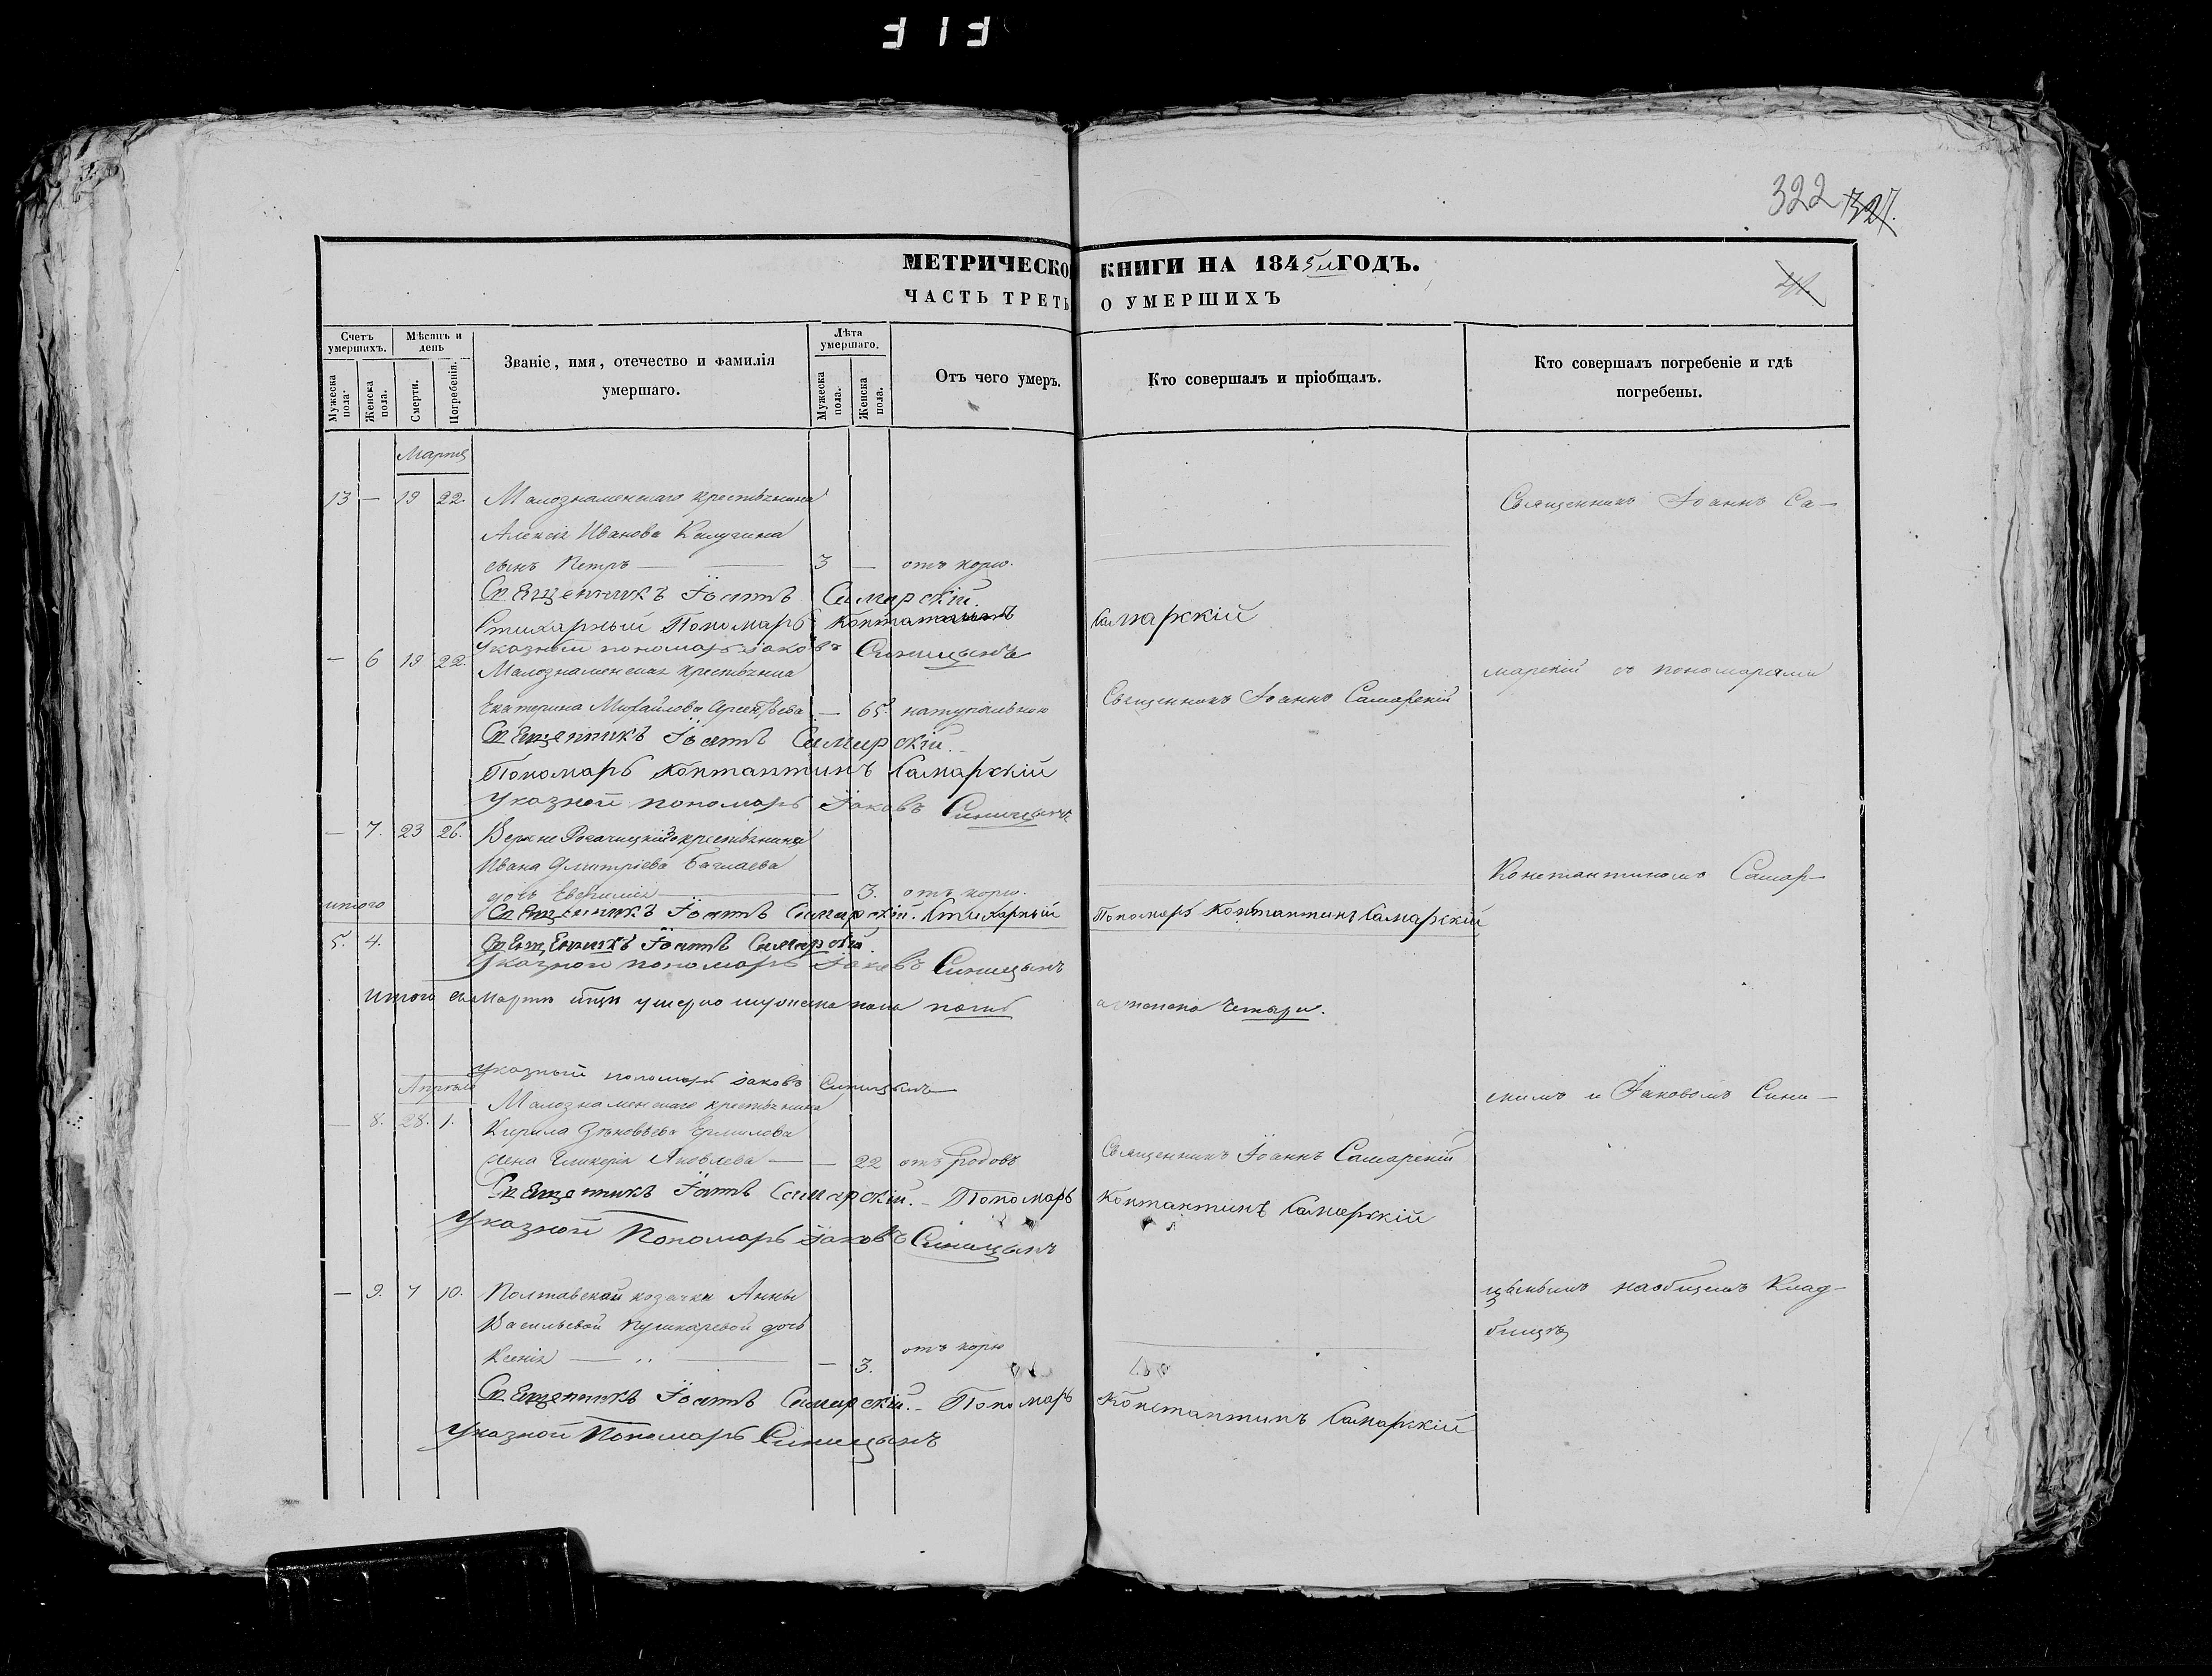 322 321.
МЕТРИЧЕСКО КНИГИ НА 1845й ГОДЪ.
ЧАСТЬ ТРЕТЬ О УМЕРШИХЪ
Счетъ умершихъ.
Мѣсяцъ и день
Званіе, имя, отечество и фамилія умершаго.
Лѣта умершаго.
Отъ чего умеръ.
Кто совершалъ и пріобщалъ.
Кто совершалъ погребеніе и гдѣ погребены.
Мужеска пола.
Женска пола.
Смерти.
Погребенія.
Мужеска пола.
Женска пола.
Марта
13 — 19 22. Малознаменскаго крестьянина
Алексія Иванова Калугина
сынъ Петръ — 3 — отъ корю.
Священникъ Іоаннъ Самарскій.
Стихарный Пономарь Констатинъ Самарскій
Указной пономарь Іаковъ Синицынъ
— 6 19 22. Малознаменская крестьянка
Екатерина Михайлова Арсентьева — 65. натуральною Священникъ Іоаннъ Самарскій
Священникъ Іоаннъ Самарскій.
Пономарь Контантинъ Самарскій
Указной пономарь Іаковъ Синицынъ
— 7. 23 26. Верхне Рогачицкій крестьянина
Ивана Дмитріева Баглаева
дочь Евфимія — 3. отъ корю.
итого Священникъ Іоаннъ Самарскій. Стихарный Пономарь Контантинъ Самарскій
5. 4. Священникъ Іоаннъ Самарскій.
Указной пономарь Іаковъ Синицынъ
Итого въ Мартѣ м-цѣ умерло мужеска пола пять а женска четыри.
Указный пономарь Іаковъ Синицынъ
Апрѣля
Малознаменскаго крестьянина
— 8. 28. 1. Кирила Зѣновьева Ермилова
жена Гликерія Яковлева — — 22 отъ родовъ Священникъ Іоаннъ Самарскій
Священникъ Іоаннъ Самарскій. — Пономарь Контантинъ Самарскій
Указной Пономарь Іаковъ Синицынъ
— 9. 7 10. Полтавской козачки Анны
Васильевой Пушкаревой дочь
Ксенія — — 3. отъ корю
Священникъ Іоаннъ Самарскій. — Пономарь Константинъ Самарскій
Указной Пономарь Синицынъ
Священникъ Іоаннъ Са-
марскій съ пономарями
Константиномъ Самар-
скимъ и Іаковомъ Сини-
цынымъ наобщемъ Клад-
бищѣ